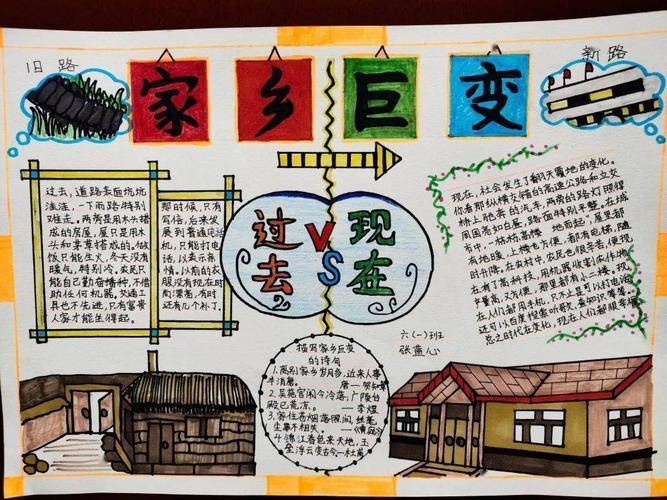 旧路
家乡巨变
新路
过去，道路表面坑坑
洼洼，一下雨路特别
难走。两旁是用木头搭
成的房屋，屋只是用木
头和茅草搭成的。做
饭只能生火，冬天没有
暖气，特别冷。农民只
能自己勤奋精种，不借
助任何机器。交通工
具也不先进，只有富贵
人家才能坐得起。
那时候，只有
写信，后来发
展到普通电话
机，只能打电
话，以表示亲
情。以前的衣
服没有现在时
尚漂亮，有时
还有几个补丁。
过去
VS
现在
现在，社会发生了翻天覆地的变化。
你看那纵横交错的高速公路和立交
桥上跑奔的汽车，两旁的路灯照得
周围亮如白昼，路面特别平整。在城
市中，一栋栋高楼 地而起，屋里都
有地暖，上楼也方便，都有电梯，随
时升降。在农村中，农民也很辛苦，便现
在有了高科技，用机器收割农作物
产量高，又方便，那里都有小二楼。现
在人们都用手机，只不止是可以打电话
还可以百度搜索听歌、查知识等等。
总之时代在变化，现在人们都很幸福
六（一）班
描写家乡巨变
的诗句
1.离别家乡岁月多，近来人事
半消磨。
唐—贺知章
2.吴苑宫闱今冷落，广陵台
殿已荒凉。
—李煜
3.家住苍烟落照间，丝毫
尘事不相关。
4.锦江春色来天地，玉
垒浮云变古今—杜甫